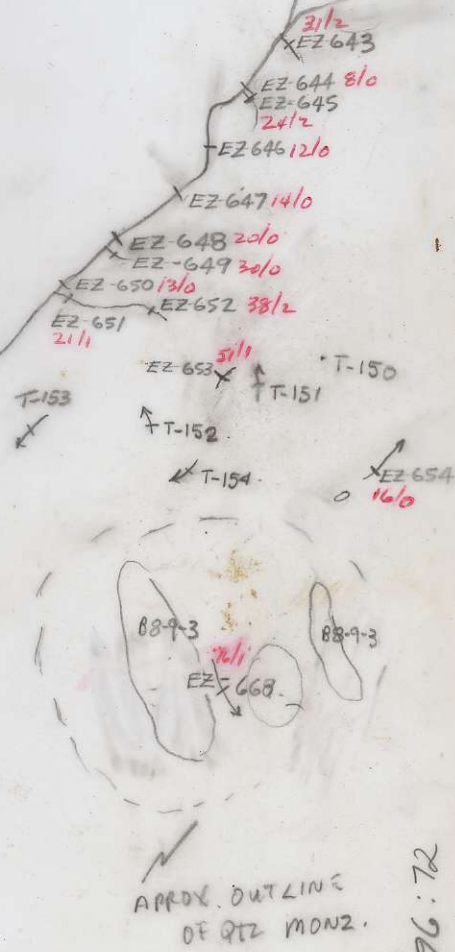 31/2
EZ-643
EZ-644 8/0
EZ-645
24/2
EZ-646 12/0
EZ-647 14/0
EZ-648 20/0
EZ-649 30/0
EZ-650 13/0
EZ-652 38/2
EZ-651
21/1
51/1
EZ-653
T-150
T-151
T-153
T-152
T-154
EZ-654
16/0
B8-9-3
B8-9-3
EZ-668
APROX. OUTLINE
OF QTZ MONZ.